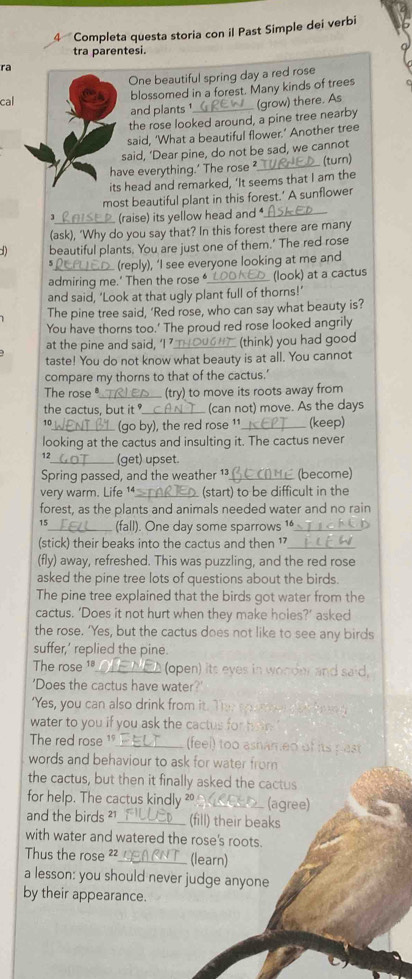 4 Completa questa storia con il Past Simple dei verbi
tra parentesi.
ra
One beautiful spring day a red rose
blossomed in a forest. Many kinds of trees
cal
and plants ¹ GREW (grow) there. As
the rose looked around, a pine tree nearby
said, 'What a beautiful flower.' Another tree
said, 'Dear pine, do not be sad, we cannot
have everything.' The rose ² TURNED (turn)
its head and remarked, 'It seems that I am the
most beautiful plant in this forest.' A sunflower
³ RAISED (raise) its yellow head and ⁴ ASKED
(ask), 'Why do you say that? In this forest there are many
d)
beautiful plants. You are just one of them.' The red rose
⁵ REPLIED (reply), 'I see everyone looking at me and
admiring me.' Then the rose ⁶ LOOKED (look) at a cactus
and said, 'Look at that ugly plant full of thorns!'
The pine tree said, 'Red rose, who can say what beauty is?
You have thorns too.' The proud red rose looked angrily
at the pine and said, 'I ⁷ THOUGHT (think) you had good
taste! You do not know what beauty is at all. You cannot
compare my thorns to that of the cactus.'
The rose ⁸ TRIED (try) to move its roots away from
the cactus, but it ⁹ CAN'T (can not) move. As the days
¹⁰ WENT BY (go by), the red rose ¹¹ KEPT (keep)
looking at the cactus and insulting it. The cactus never
¹² GOT (get) upset.
Spring passed, and the weather ¹³ BECOME (become)
very warm. Life ¹⁴ STARTED (start) to be difficult in the
forest, as the plants and animals needed water and no rain
¹⁵ FELL (fall). One day some sparrows ¹⁶ STICKED
(stick) their beaks into the cactus and then ¹⁷ FLEW
(fly) away, refreshed. This was puzzling, and the red rose
asked the pine tree lots of questions about the birds.
The pine tree explained that the birds got water from the
cactus. 'Does it not hurt when they make holes?' asked
the rose. 'Yes, but the cactus does not like to see any birds
suffer,' replied the pine.
The rose ¹⁸ OPENED (open) its eyes in wonder and said,
'Does the cactus have water?'
'Yes, you can also drink from it. The
water to you if you ask the cactus for
The red rose ¹⁹ FELT (feel) too ashamed of its past
words and behaviour to ask for water from
the cactus, but then it finally asked the cactus
for help. The cactus kindly ²⁰ AGREED (agree)
and the birds ²¹ FILLED (fill) their beaks
with water and watered the rose's roots.
Thus the rose ²² LEARNT (learn)
a lesson: you should never judge anyone
by their appearance.